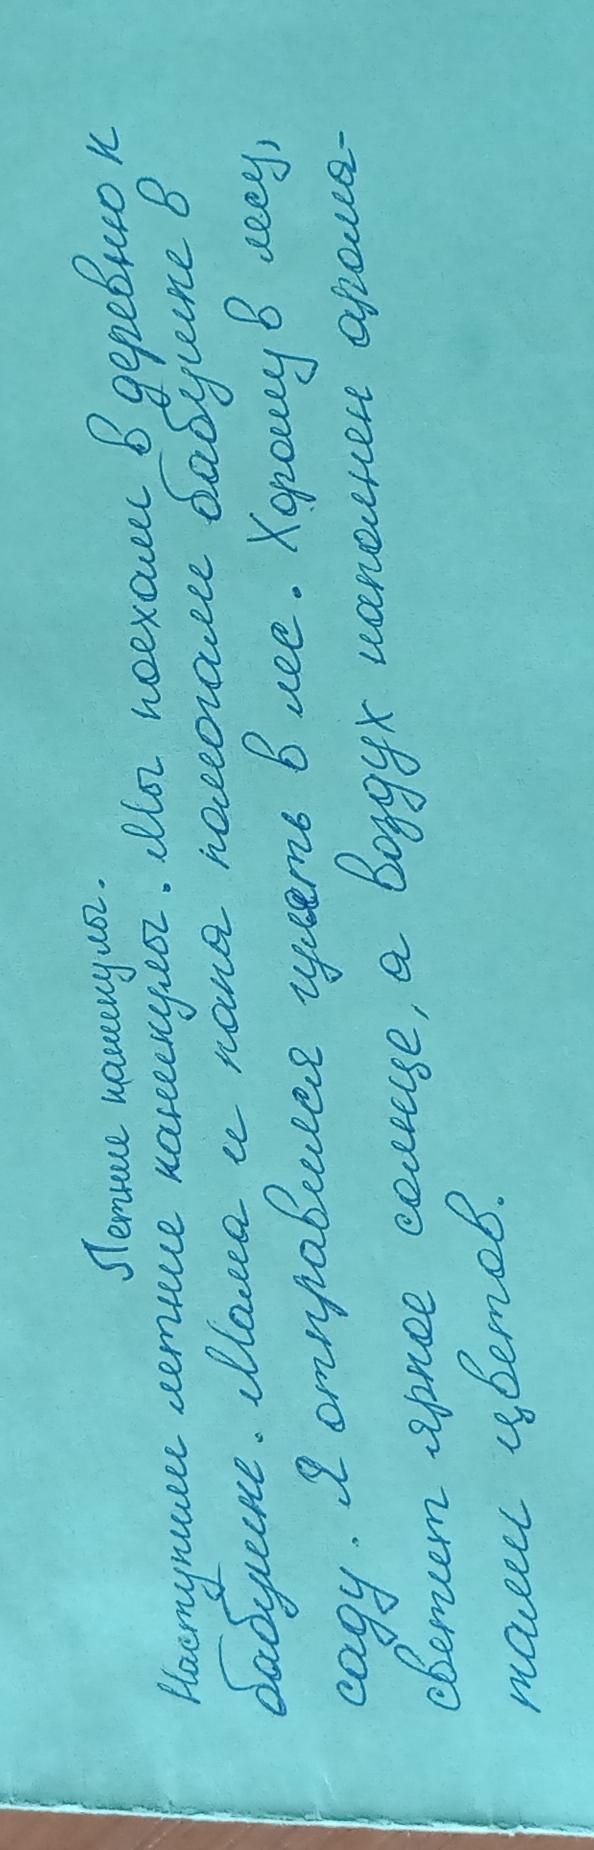 Летние каникулы.
Наступили летние каникулы. Мы поехали в деревню к
бабушке. Мама и папа помогали бабушке в
саду. Я отправился гулять в лес. Хорошу в лесу,
светит яркое солнце, а воздух наполнен арома-
тами цветов.